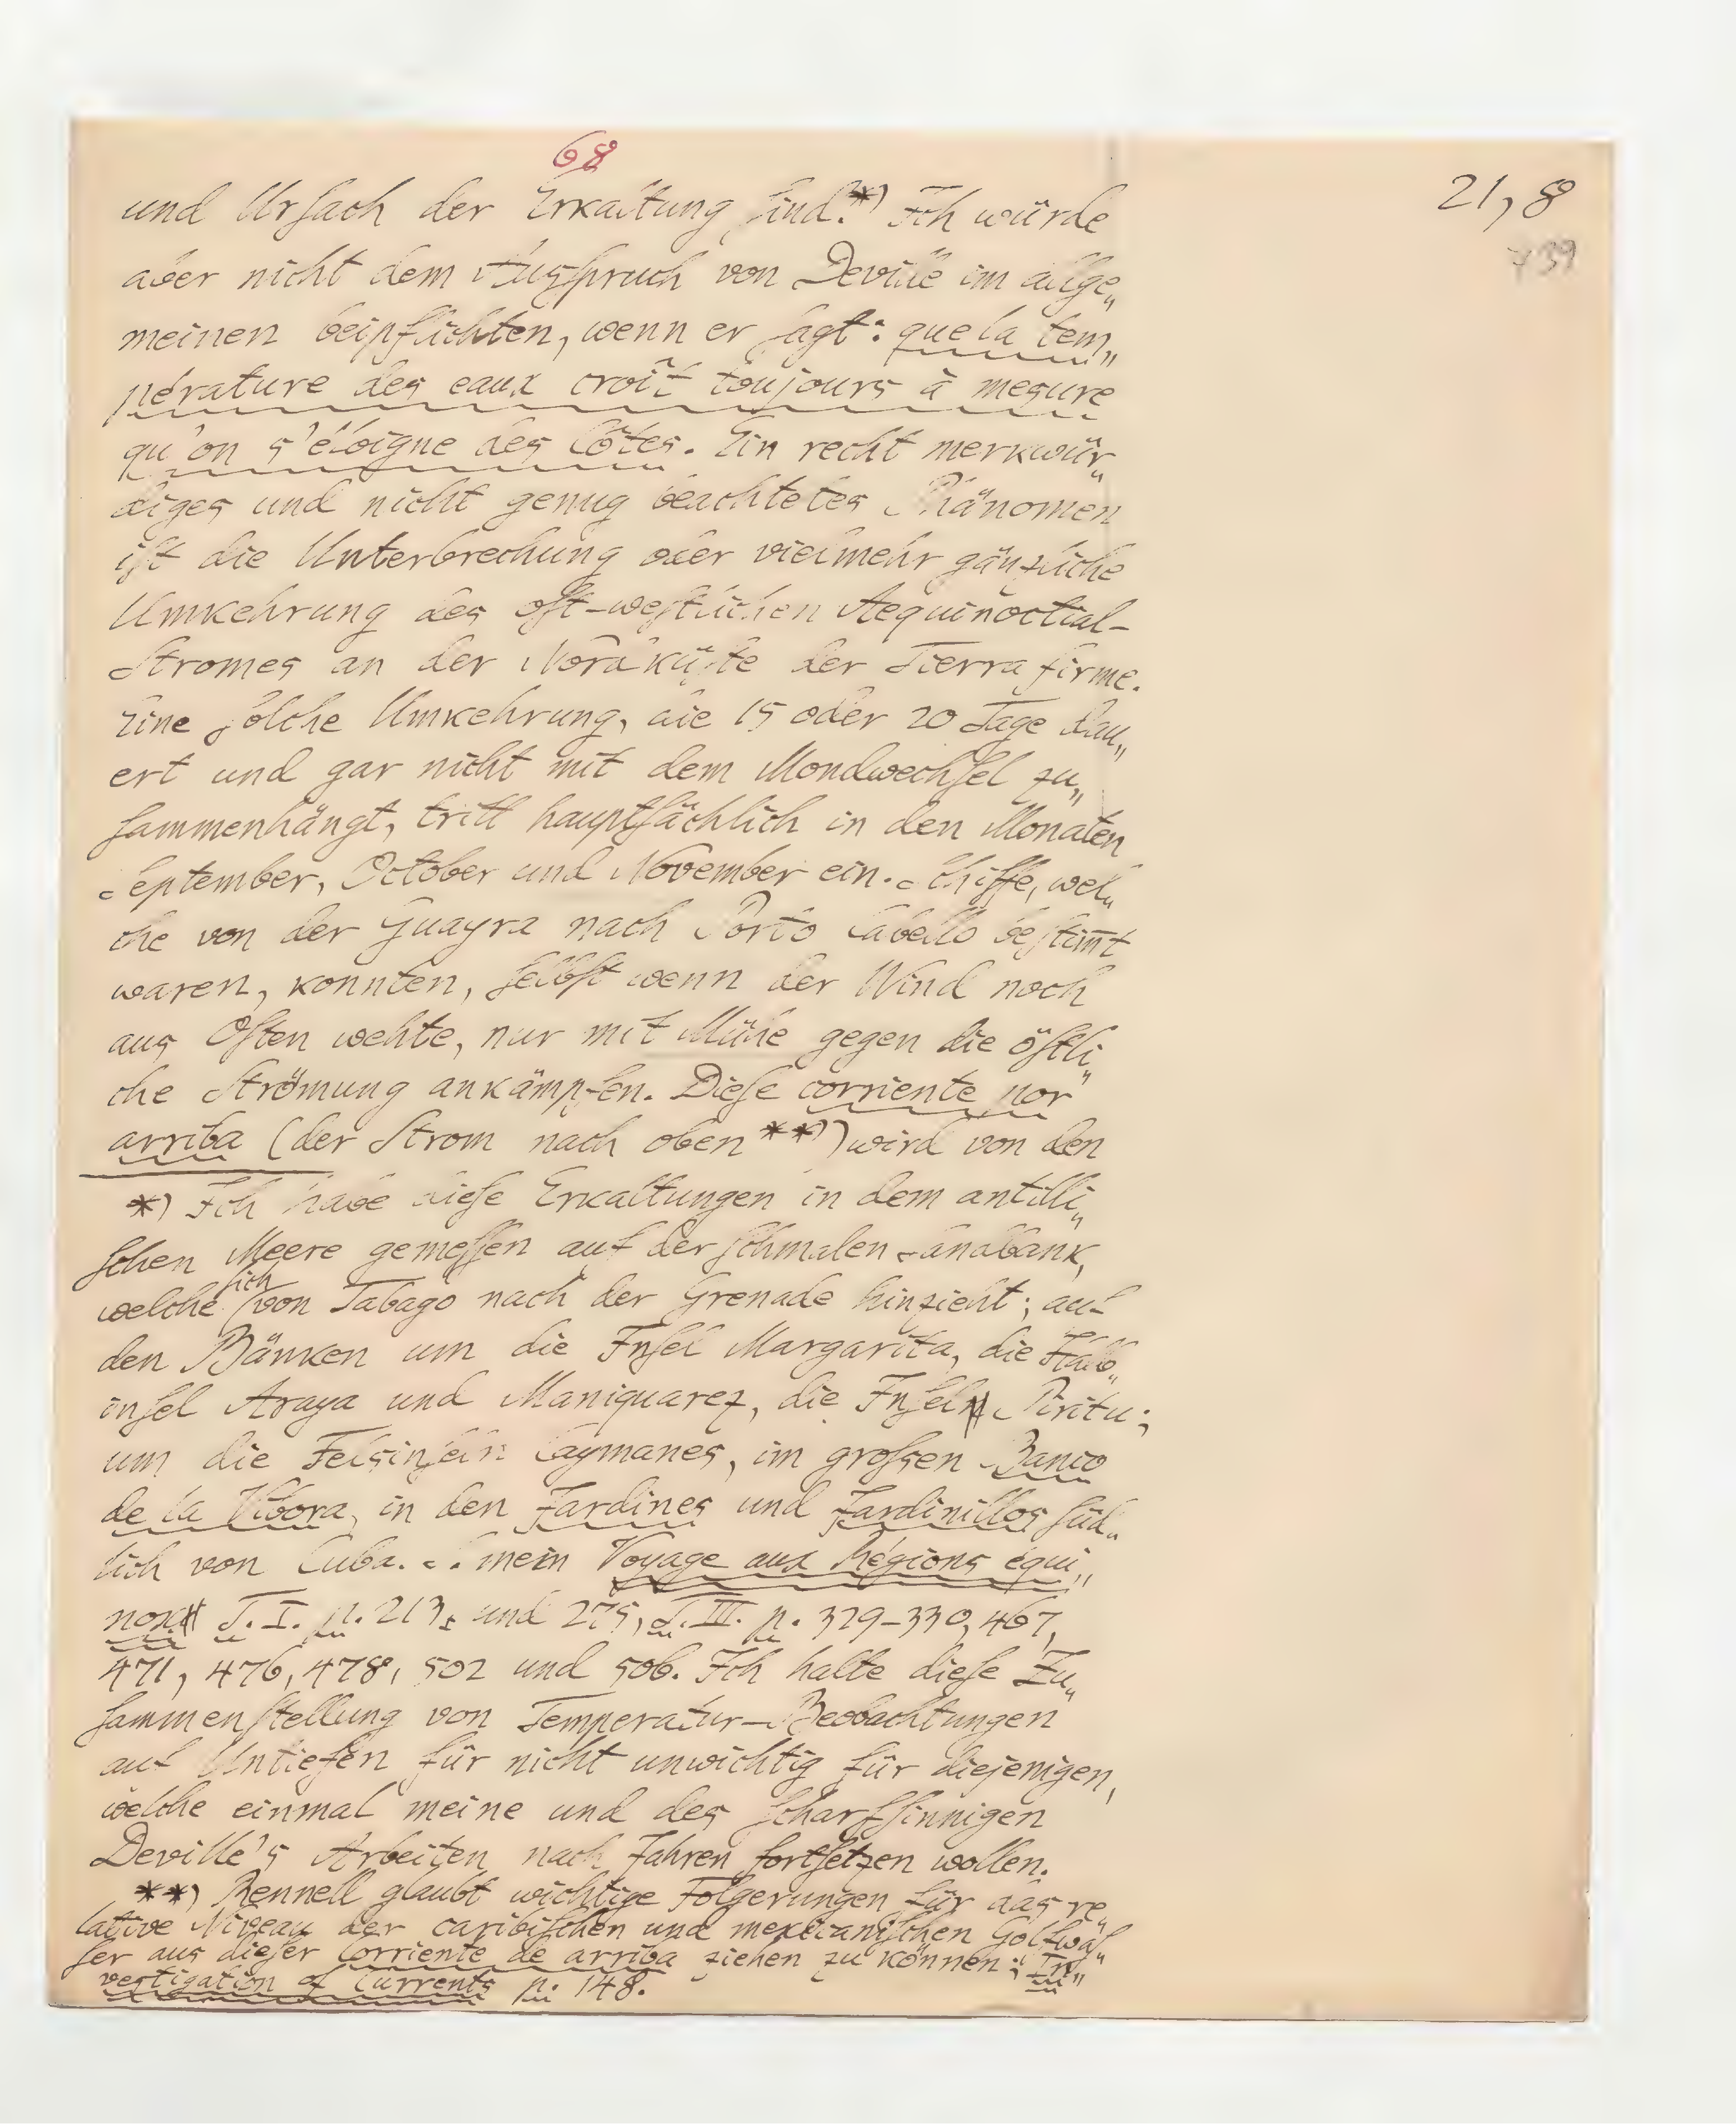 68
21, 8
739
und Ursach der Erkältung sind.*) Ich würde
aber nicht dem Ausspruch von Deville im allge„
meinen beipflichten, wenn er sagt: que la tem„
pérature des eaux croît toujours à mesure
qu'on s'éloigne des Côtes. Ein recht merkwür„
diges und nicht genug beachtetes Phänomen
ist die Unterbrechung oder vielmehr gänzliche
Umkehrung des ost-westlichen Aequinoctial-
Stromes an der Nordküste der Tierra firme.
Eine solche Umkehrung, die 15 oder 20 Tage dau„
ert und gar nicht mit dem Mondwechsel zu„
sammenhängt, tritt hauptsächlich in den Monaten
September, October und November ein. Schiffe, wel„
che von der Guayra nach Porto Cabello bestim̄t
waren, konnten, selbst wenn der Wind noch
aus Osten wehte, nur mit Mühe gegen die östli„
che Strömung ankämpfen. Diese corriente por
arriba (der Strom nach oben**)) wird von den
*) Ich habe diese Erkaltungen in dem antilli„
schen Meere gemessen auf der schmalen Sandbank,
welche sich von Tabago nach der Grenade hinzieht; auf
den Bänken um die Insel Margarita, die Halb„
insel Araya und Maniquarez, die Inseln Piritu;
um die Felsinseln Caymanes, im grossen Banco
de la Vibora, in den Jardines und Jardinillos süd„
lich von Cuba. S. mein Voyage aux Régions équi„
nox. T. I. p. 213. und 275, T. III. p. 329–330, 467,
471, 476, 478, 502 und 506. Ich halte diese Zu„
sammenstellung von Temperatur-Beobachtungen
auf Untiefen für nicht unwichtig für diejenigen,
welche einmal meine und des scharfsinnigen
Deville's Arbeiten nach Jahren fortsetzen wollen.
**) Rennell glaubt wichtige Folgerungen für das re„
lative Niveau der caribischen und mexicanischen Golfwäs„
ser aus dieser corriente de arriba ziehen zu können: In„
vestigation of Currents p. 148.